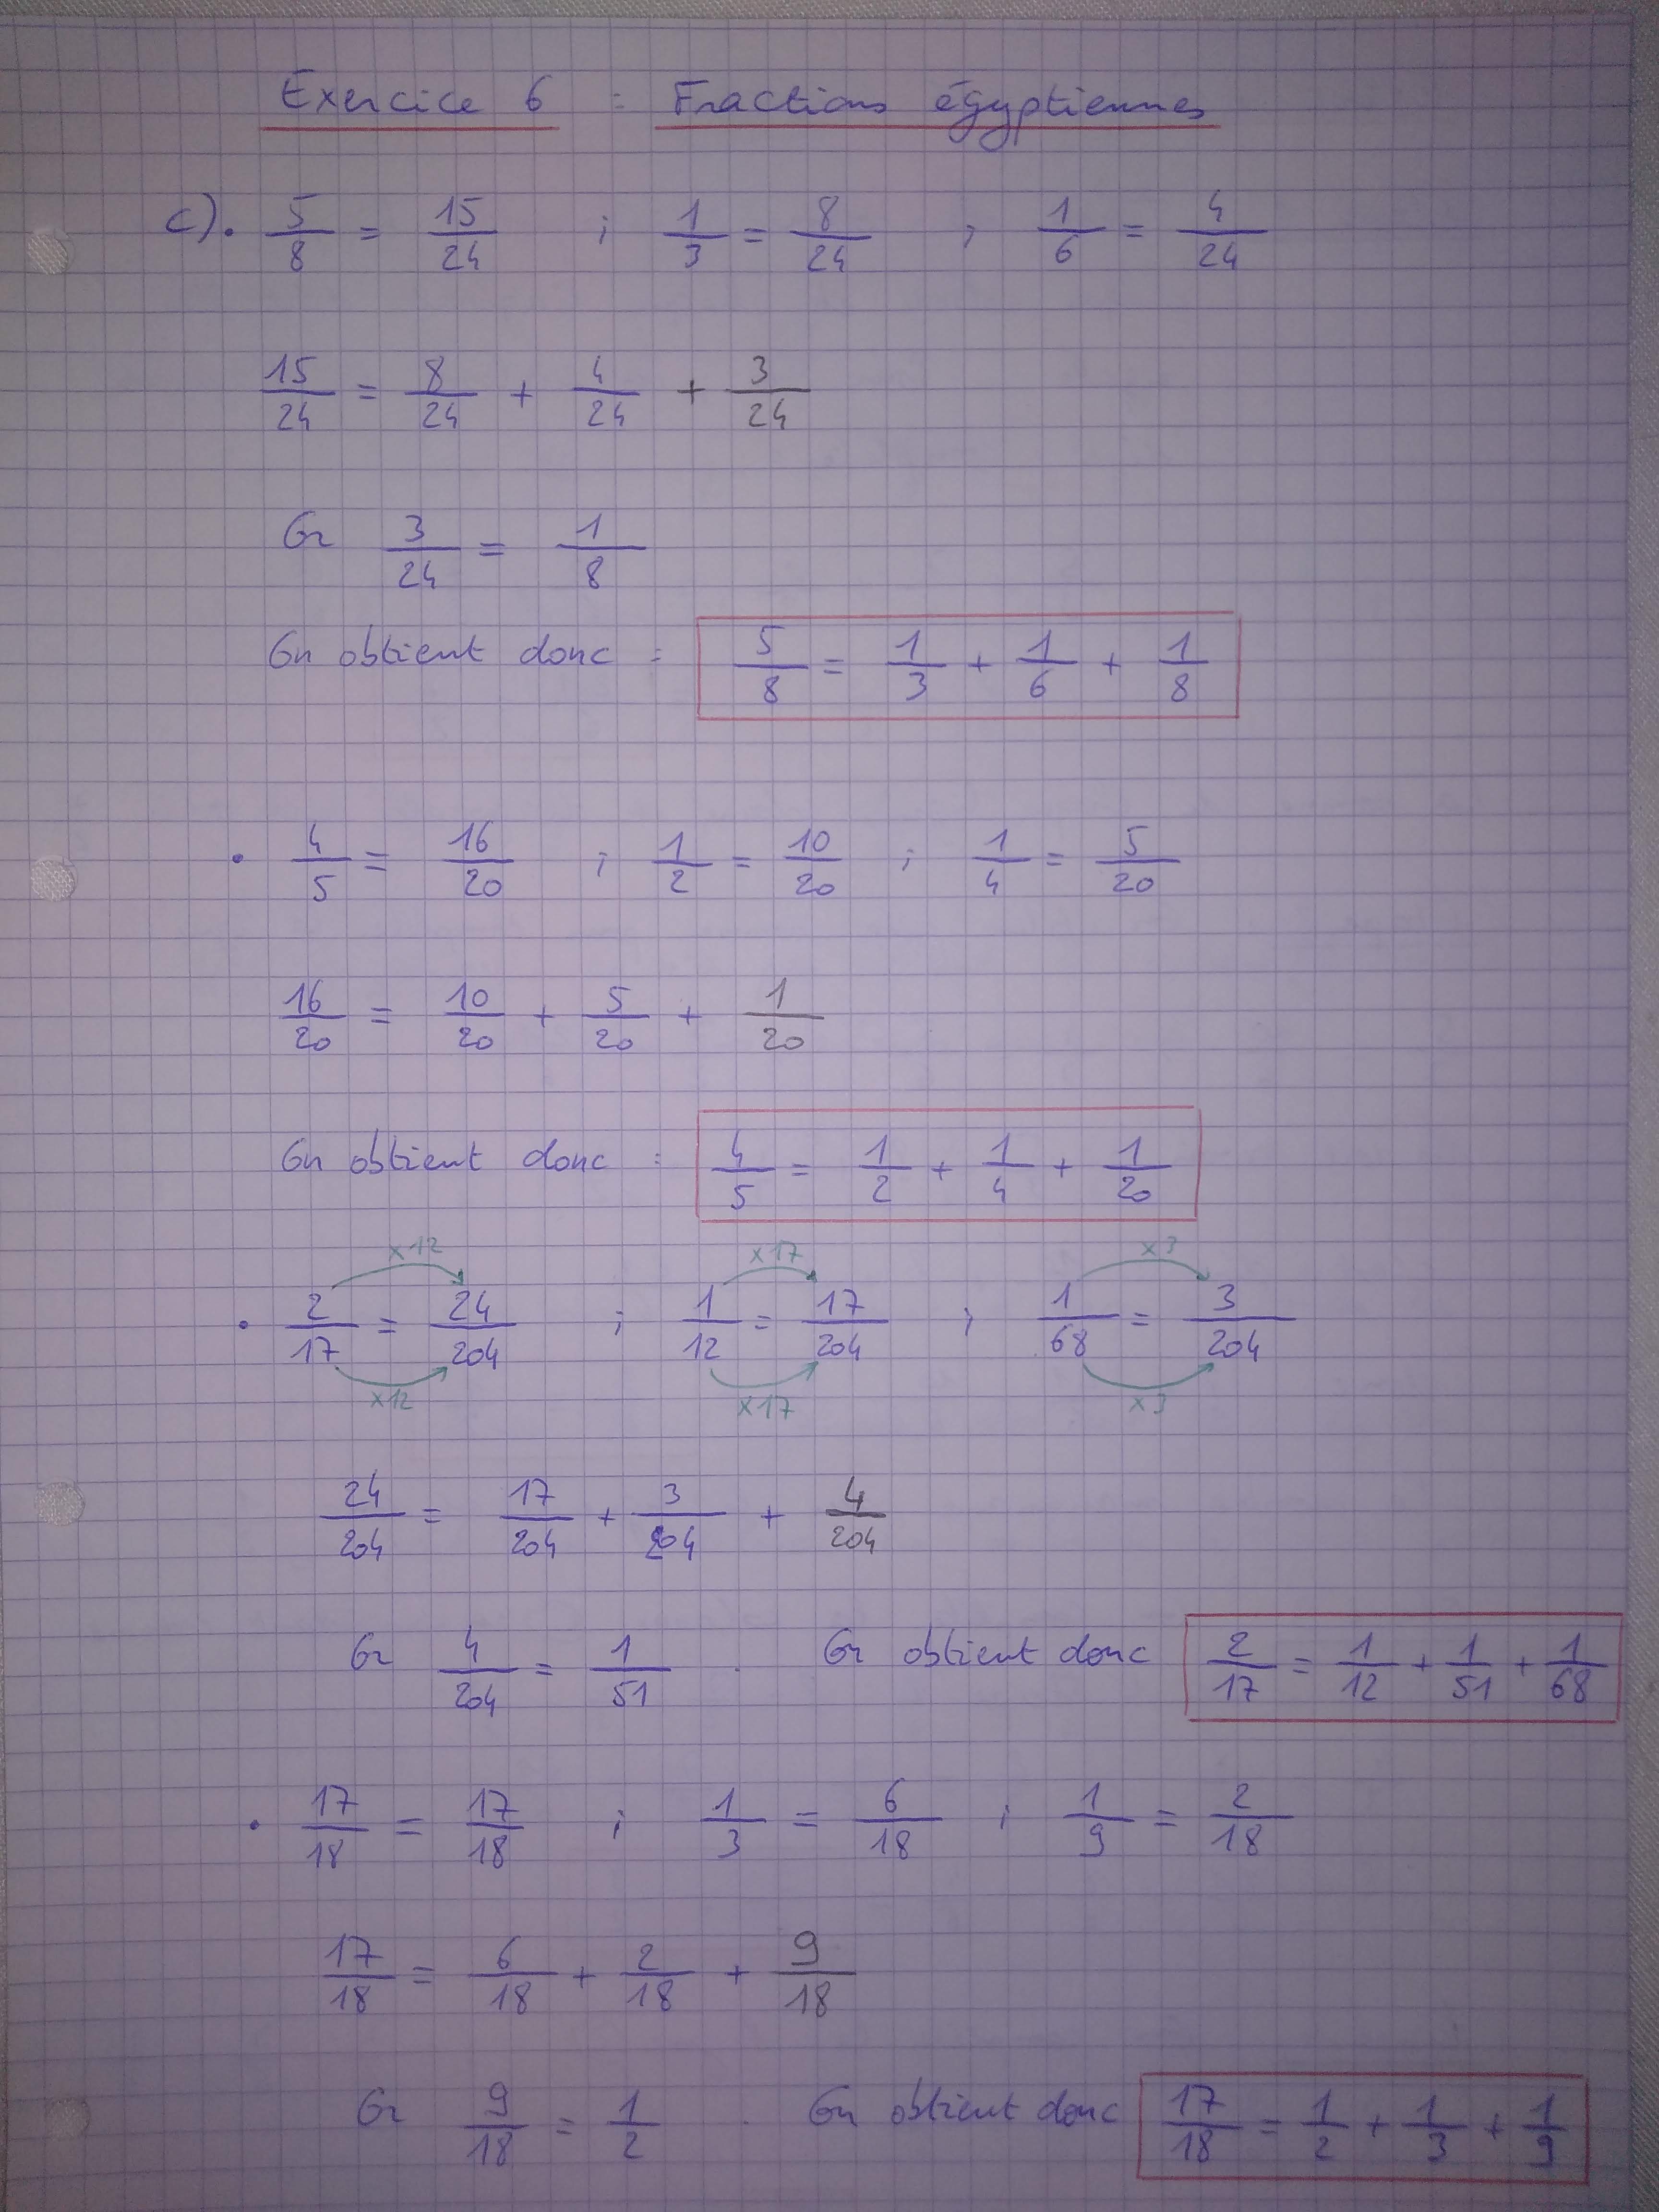 Exercice 6 : Fractions égyptiennes
c). 5/8 = 15/24 ; 1/3 = 8/24 ; 1/6 = 4/24
15/24 = 8/24 + 4/24 + 3/24
Or 3/24 = 1/8
On obtient donc : 5/8 = 1/3 + 1/6 + 1/8
• 4/5 = 16/20 ; 1/2 = 10/20 ; 1/4 = 5/20
16/20 = 10/20 + 5/20 + 1/20
On obtient donc : 4/5 = 1/2 + 1/4 + 1/20
x12 x17 x3
• 2/17 = 24/204 ; 1/12 = 17/204 ; 1/68 = 3/204
x12 x17 x3
24/204 = 17/204 + 3/204 + 4/204
Or 4/204 = 1/51 . On obtient donc 2/17 = 1/12 + 1/51 + 1/68
• 17/18 = 17/18 ; 1/3 = 6/18 ; 1/9 = 2/18
17/18 = 6/18 + 2/18 + 9/18
Or 9/18 = 1/2 . On obtient donc 17/18 = 1/2 + 1/3 + 1/9